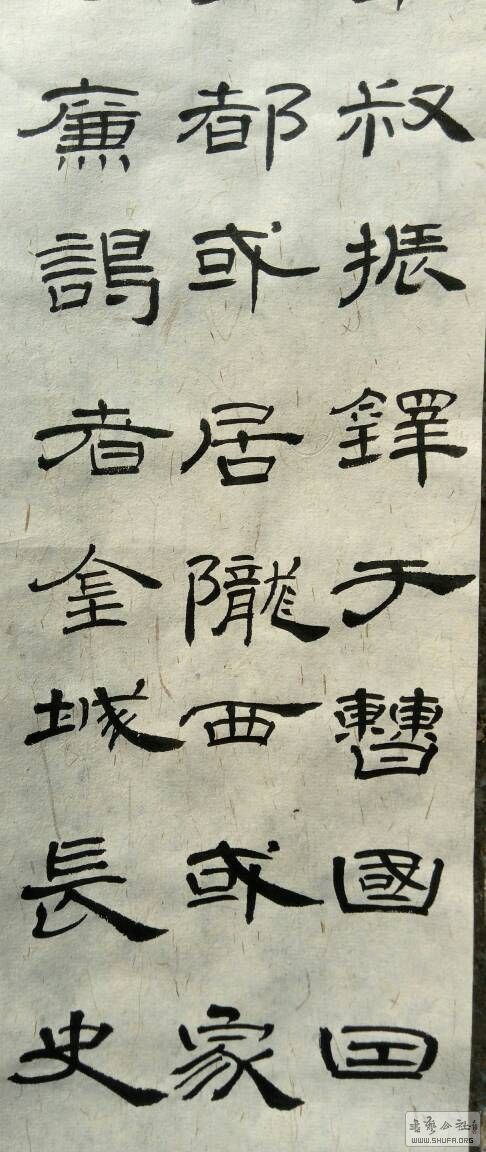 叔振鐸于曹國因
都或居隴西或家
廉謁者金城長史
書藝公社
WWW.SHUFA.ORG